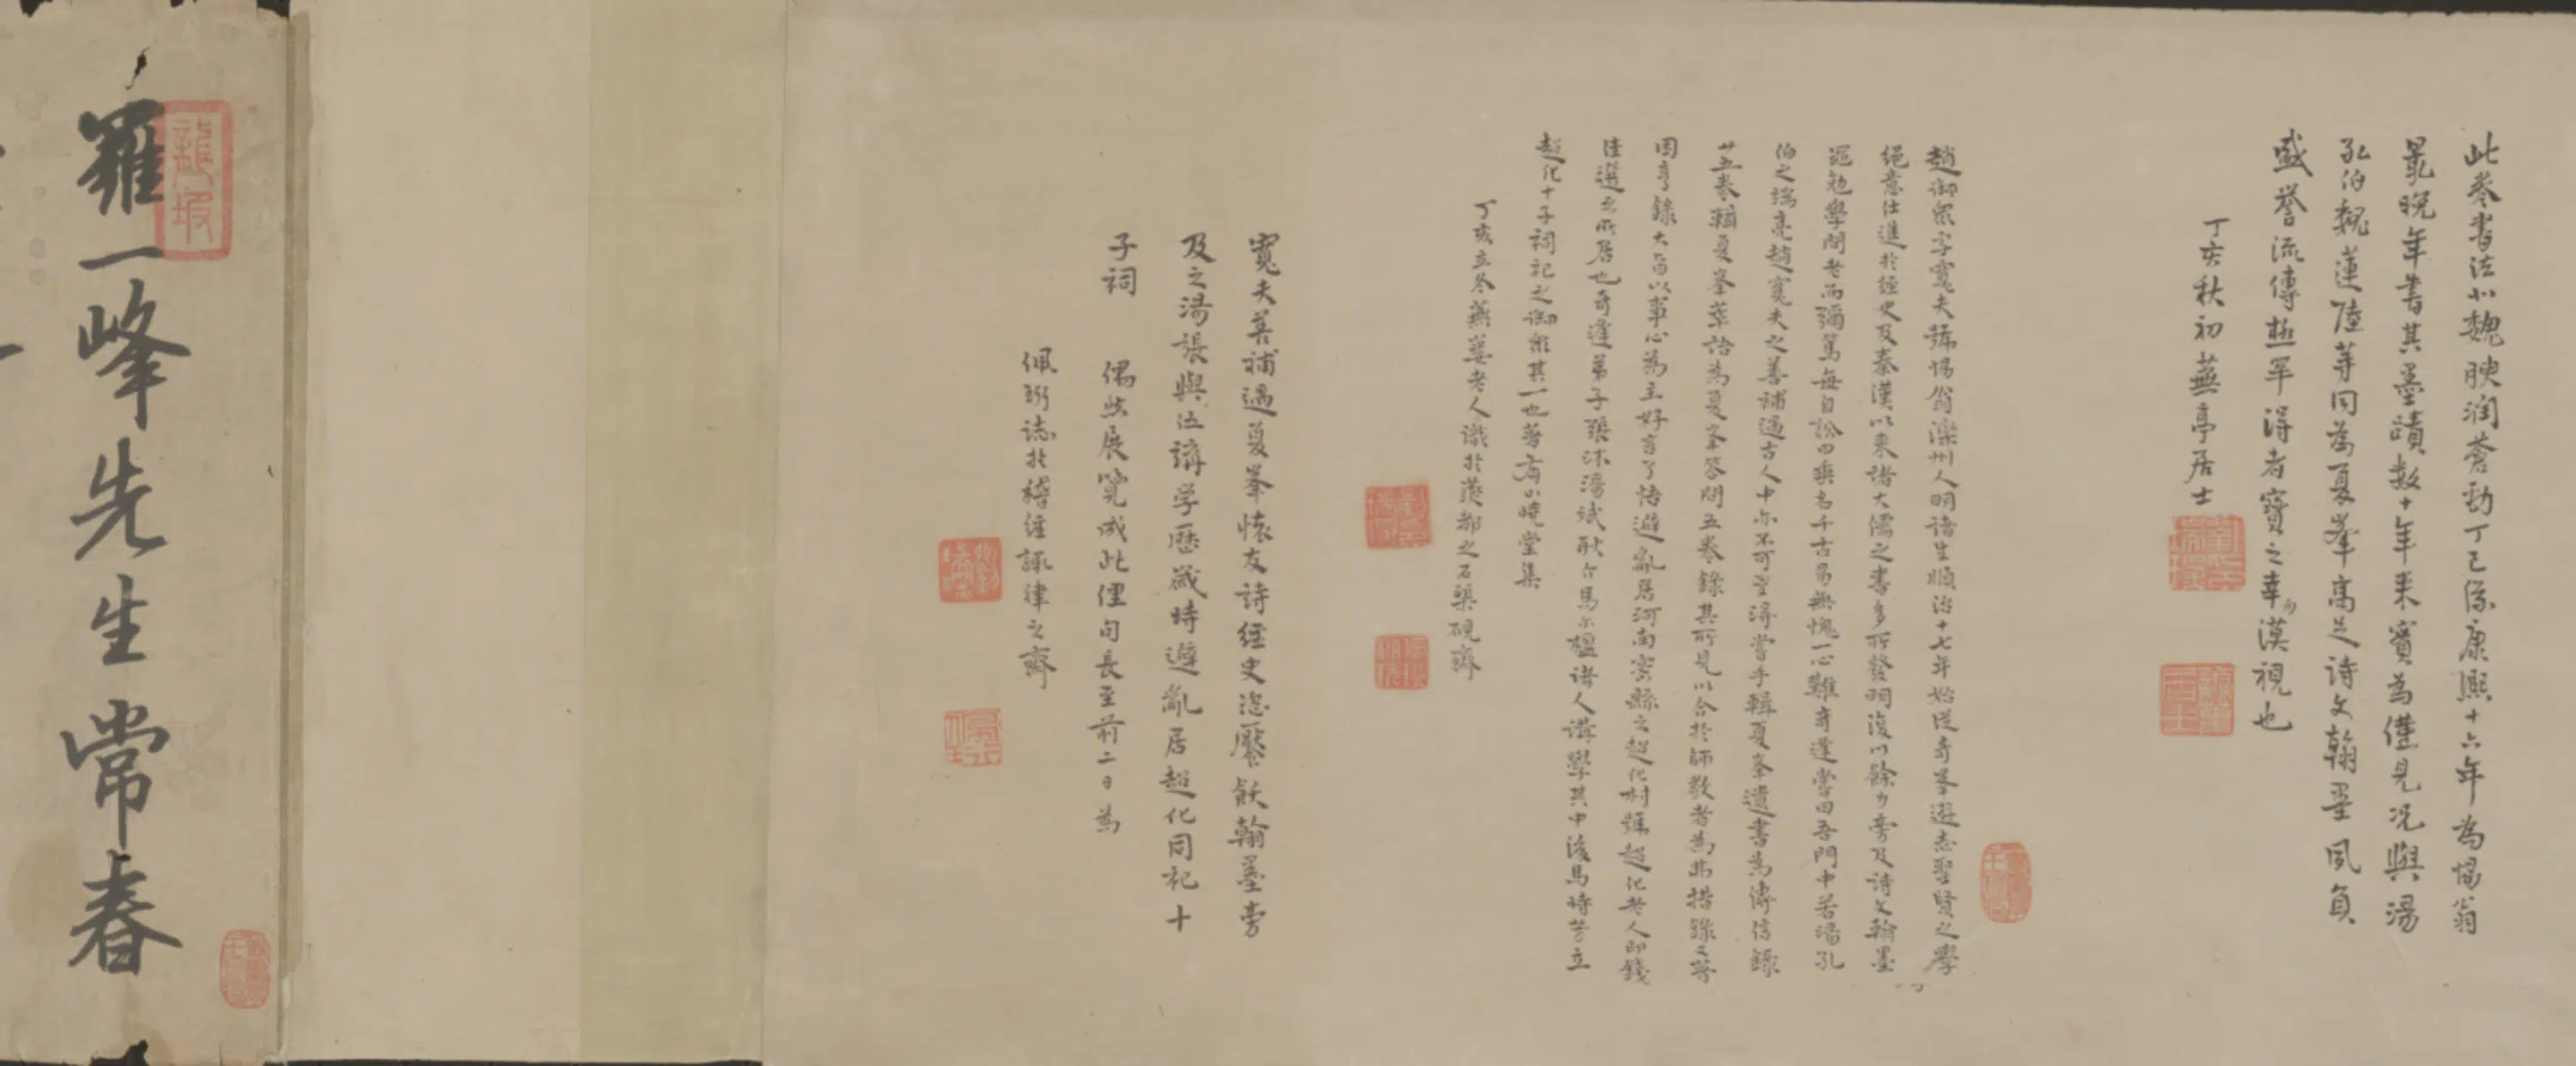 此卷書法小魏腴潤蒼勁丁巳係康熙十六年為惕翁
最晚年書其墨蹟數十年來實為僅見況與湯
孔伯魏蓮陸等同為夏峯高足詩文翰墨夙負
盛譽流傳極罕得者寶之幸勿漠視也
丁亥秋初蕪亭居士
趙御眾字寬夫號惕翁灤州人明諸生順治十七年始從奇峯遊志聖賢之學
絕意仕進於經史及秦漢以來諸大儒之書多所發明復以餘力旁及詩文翰墨
勉學問老而彌篤每自訟曰垂名千古易無愧一心難奇逢嘗曰吾門中若湯孔
伯之端亮趙寬夫之善補過古人中亦不可多得嘗手輯夏峯遺書為傳信錄
廿五卷輯夏峯語為夏峯答問五卷錄其所見以合於師教者為弗措錄又著
困亨錄大旨以事心為主好言了悟避亂居河南密縣之超化村號超化老人即錢
佳選之所居也奇逢弟子張沐湯斌耿介馬尔楹諸人講學其中後馬時芳立
超化十子祠祀之御眾其一也著有山曉堂集
丁亥立冬蕪蔞老人識於燕都之石渠硯齋
寬夫善補過夏峯懷友詩經史恣饜飫翰墨旁
及之湯張與伍講学歷歲時避亂居超化同祀十
子祠 偶然展覽成此俚句長至前二日為
佩珩誌於稽經諏律之齋
羅一峰先生常春